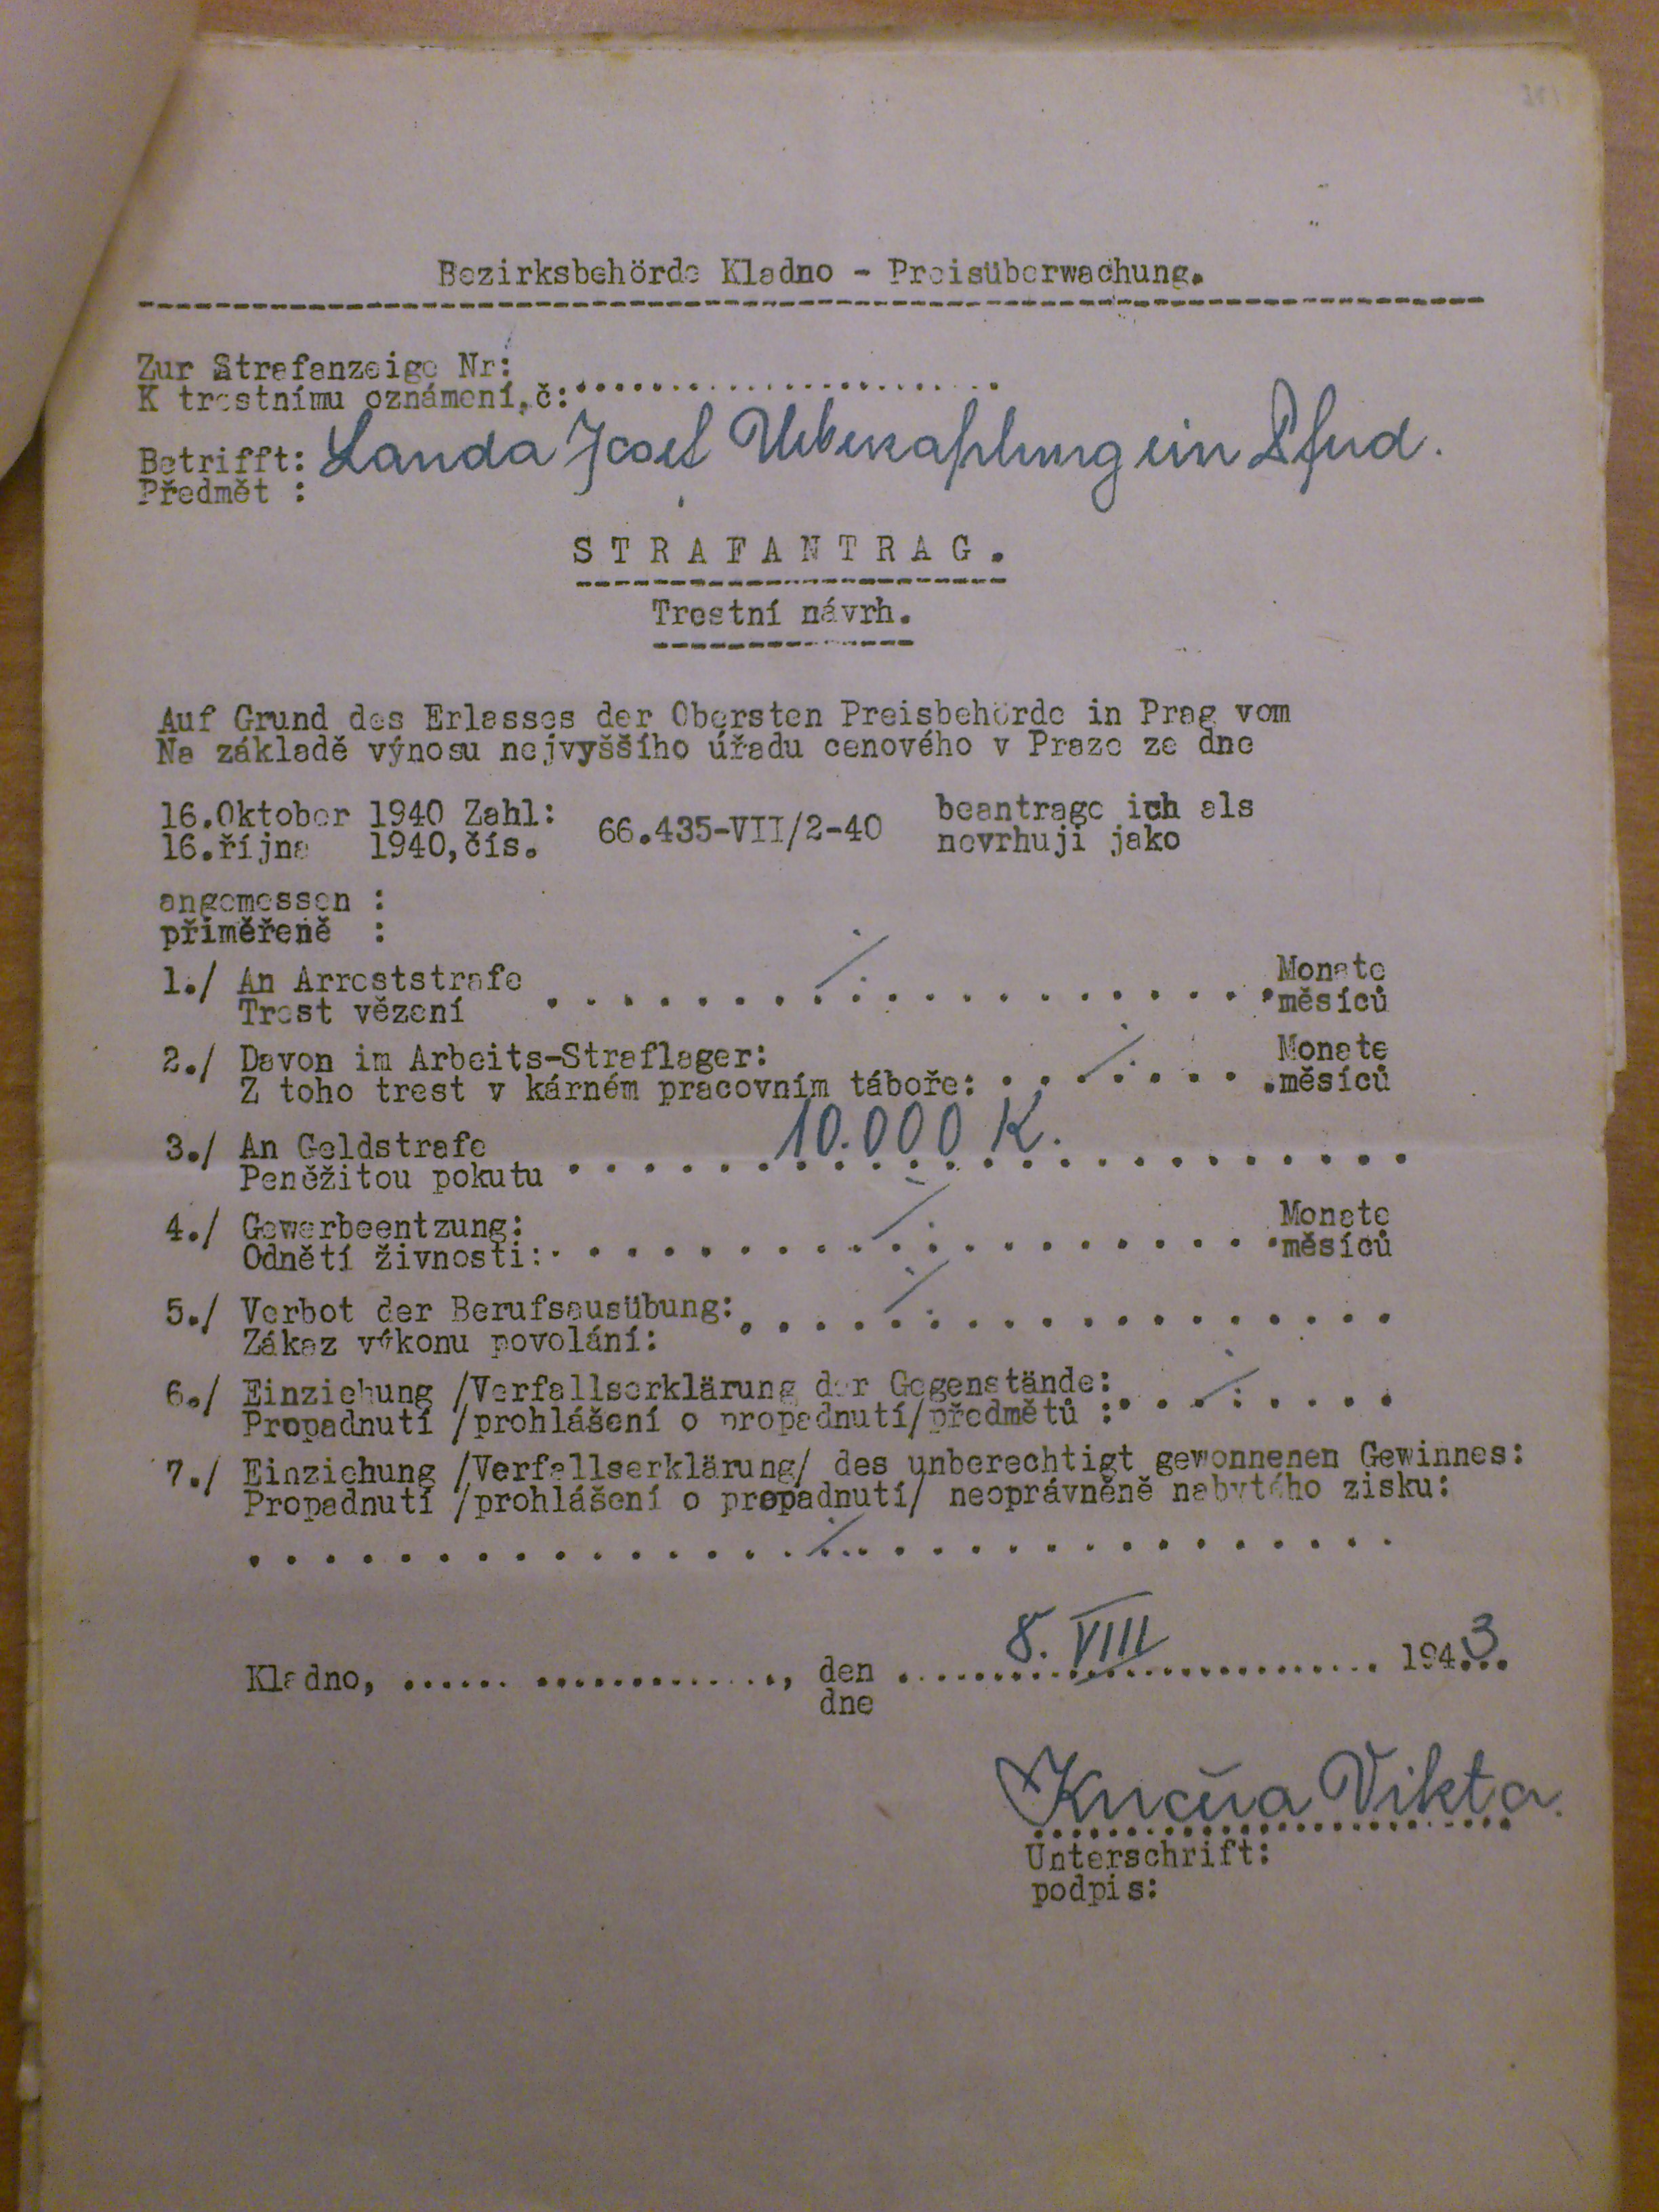 Bezirksbehörde Kladno - Preisüberwachung.
Zur Strafanzeige Nr:
K trestnímu oznámení,č:........................
Betrifft: Landa Josef Ueberzahlung ein Pferd.
Předmět :
STRAFANTRAG.
Trestní návrh.
Auf Grund des Erlasses der Obersten Preisbehörde in Prag vom
Na základě výnosu nejvyššího úřadu cenového v Praze ze dne
16.Oktober 1940 Zahl: 66.435-VII/2-40 beantrage ich als
16.října 1940,čís. navrhuji jako
angemessen :
přiměřeně :
1./ An Arreststrafe Monate
Trest vězení . . . . . . . . ./. . . . . . . . . . . . měsíců
2./ Davon im Arbeits-Straflager: Monate
Z toho trest v kárném pracovním táboře: . . . ./. . . . měsíců
3./ An Geldstrafe 10.000 K.
Peněžitou pokutu . . . . . . . . . . . . . . . . . . . . . .
4./ Gewerbeentzung: Monate
Odnětí živnosti: . . . . . . . . ./. . . . . . . . . . měsíců
5./ Verbot der Berufsausübung: . . . . ./. . . . . . . . . . . . .
Zákaz výkonu povolání:
6./ Einziehung /Verfallserklärung der Gegenstände: . . ./. . . . .
Propadnutí /prohlášení o propadnutí/předmětů :
7./ Einziehung /Verfallserklärung/ des unberechtigt gewonnenen Gewinnes:
Propadnutí /prohlášení o propadnutí/ neoprávněně nabytého zisku:
. . . . . . . . . . . . . . ./. . . . . . . . . . . . . . .
Kladno, ...... ............., den 8. VIII 1943
dne
Kučera Vikta.
Unterschrift:
podpis: